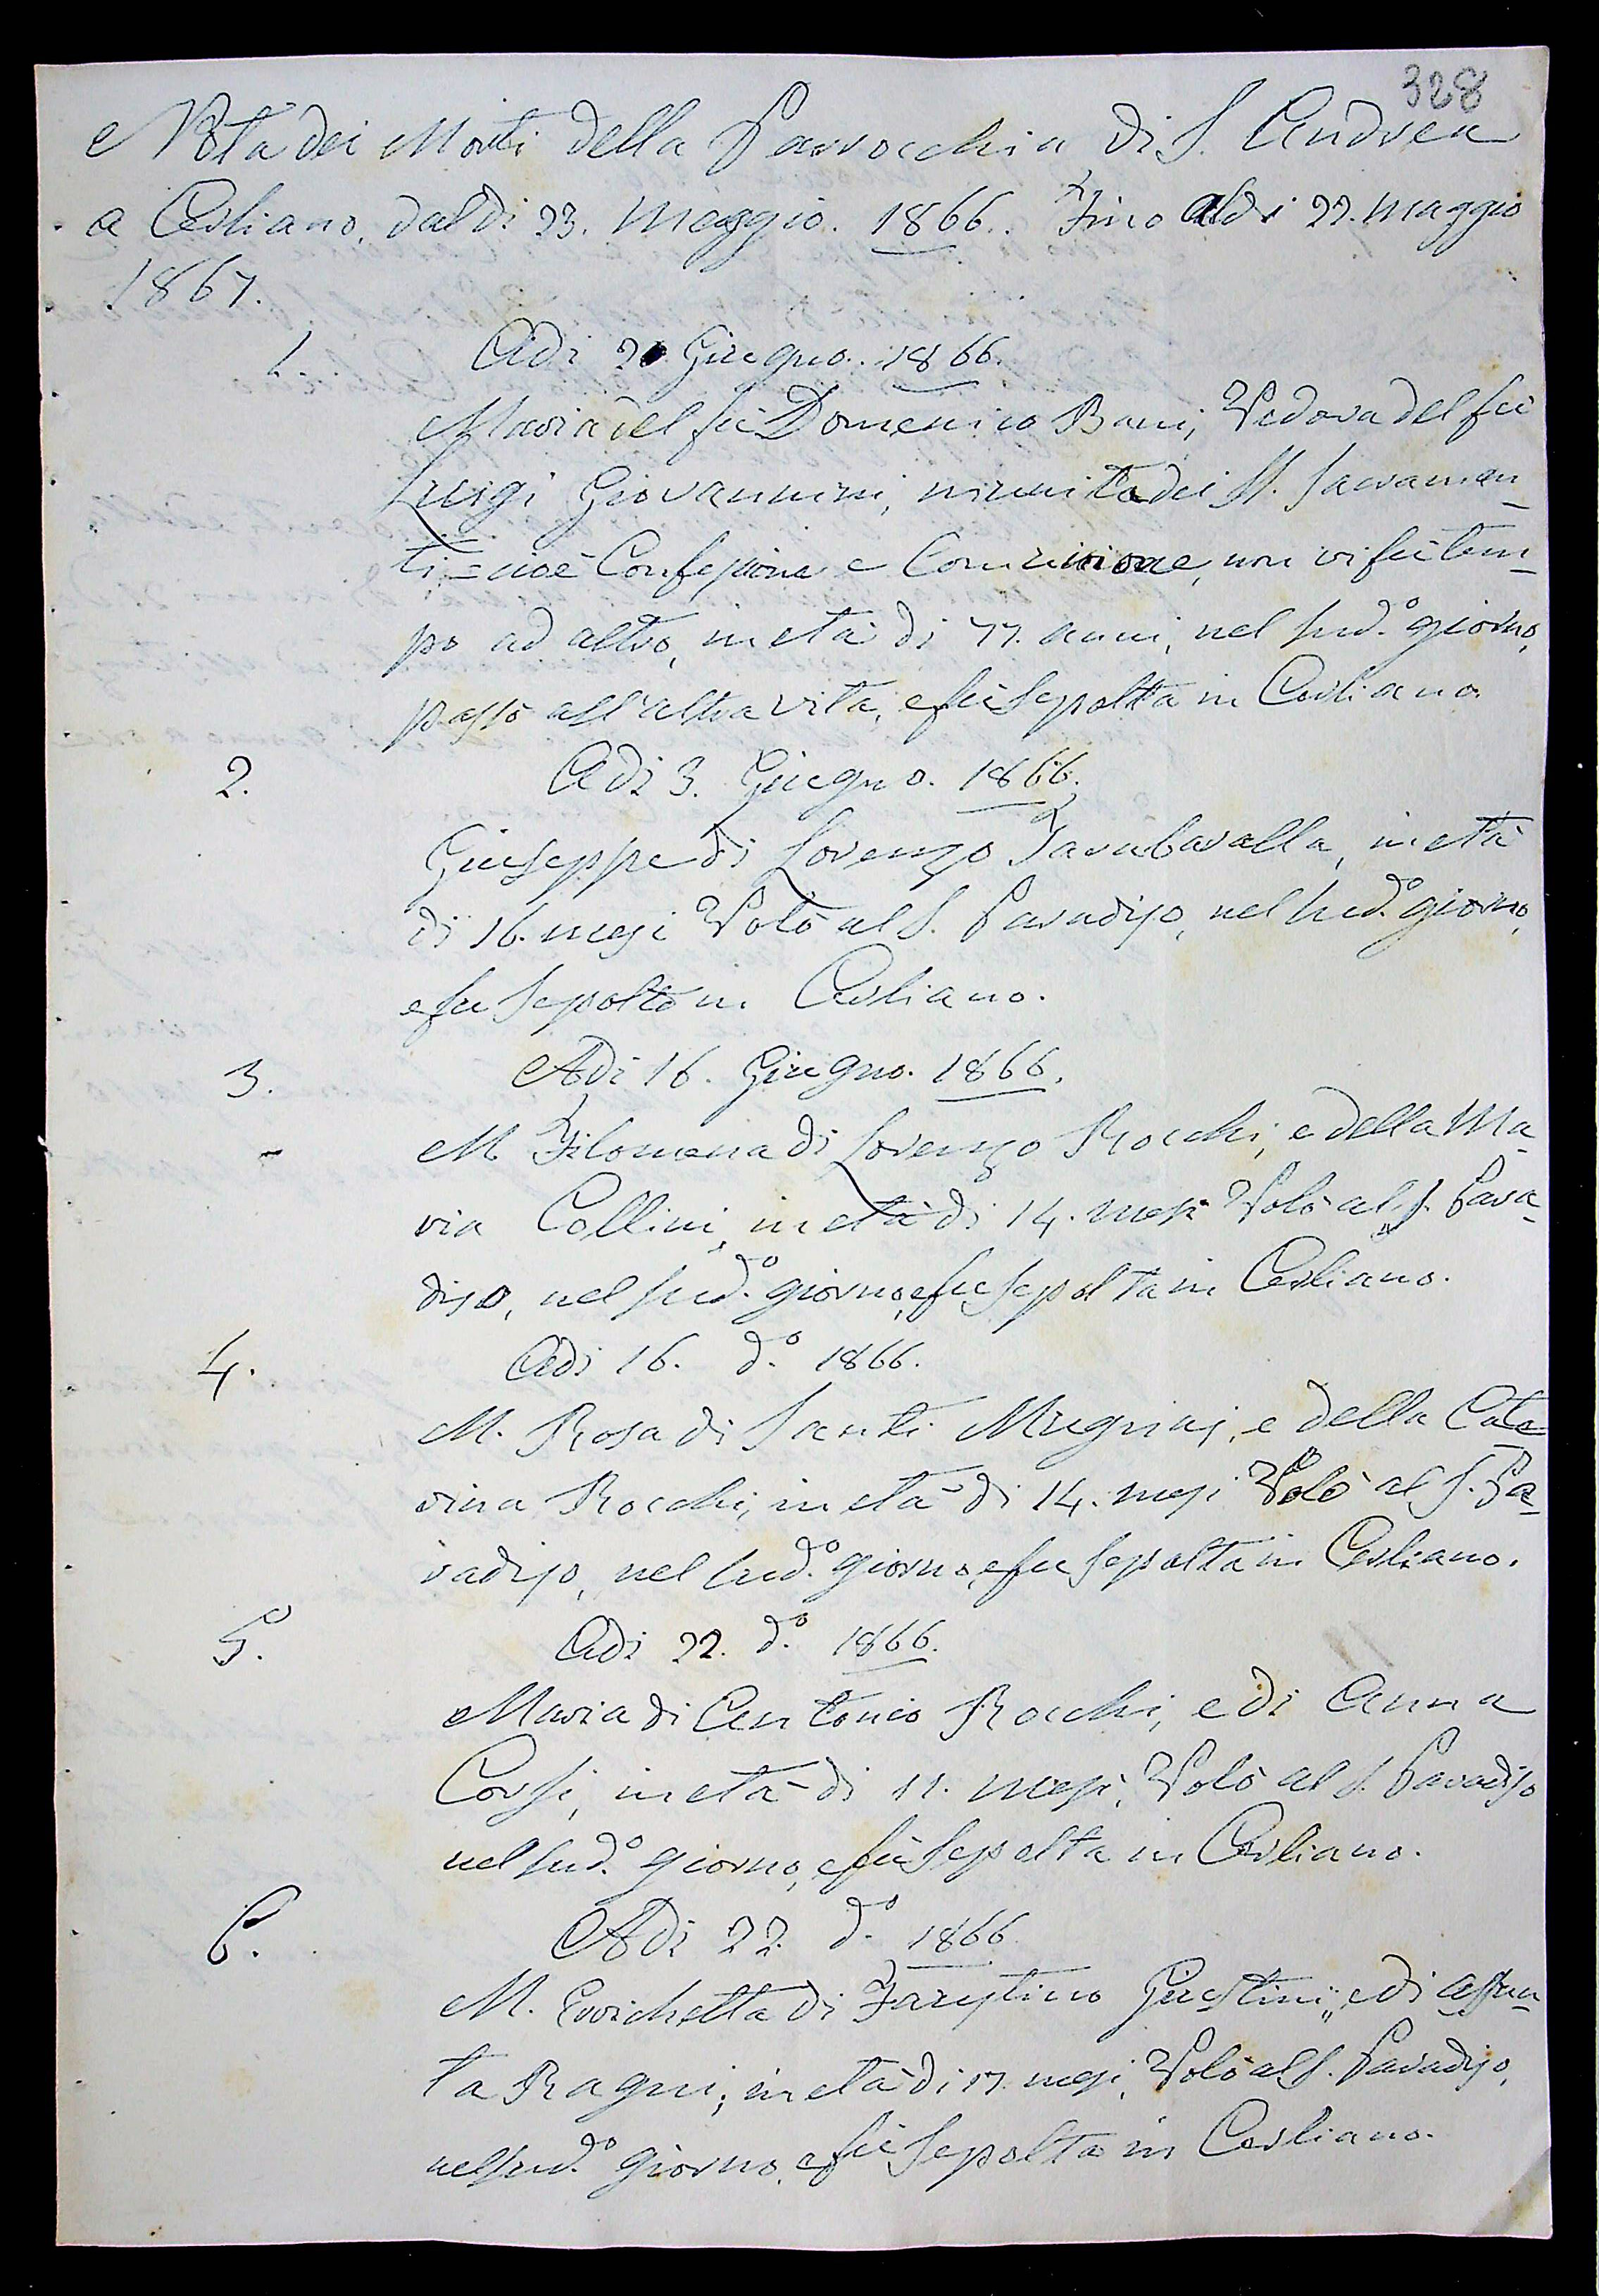 328
Nota dei Morti della Parrocchia di S. Andrea
a Cerliano, dal dì 23. Maggio. 1866.. Fino al dì 22. Maggio
1867.
1. Adì 2 Giugno.. 1866.
Maria del fù Domenico Bani, Vedova del fù
Luigi Giovannini, munita dei SS. Sacramen-
ti = cioè Confessione e Comunione, non vi fù tem-
po ad altro, in età di 77. anni, nel sud.o giorno,
passò all'altra vita, e fù Sepolta in Cerliano.
2. Adì 3. Giugno. 1866.
Giuseppe di Lorenzo Tarabaralla, in età
di 16. mesi Volò al S. Paradiso, nel sud.o giorno,
e fu Sepolto in Cerliano.
3. Adì 16. Giugno. 1866.
M. Filomena di Lorenzo Rocchi, e della Ma-
ria Collini, in età di 14. mesi Volò al S. Para-
diso, nel sud.o giorno, e fu Sepolta in Cerliano.
4. Adì 16. d.o 1866.
M. Rosa di Santi Mugnai, e della Cate-
rina Rocchi, in età di 14. mesi Volò al S. Pa-
radiso, nel sud.o giorno, e fu Sepolta in Cerliano.
5. Adì 22. d.o 1866.
Maria di Antonio Rocchi, e di Anna
Corsi, in età di 11. mesi, Volò al S. Paradiso
nel sud.o giorno, e fù Sepolta in Cerliano.
6. Adì 22. d.o 1866.
M. Enrichetta di Faustino Giustini, e di Assun-
ta Ragni; in età di 17. mesi, Volò al S. Paradiso,
nel sud.o giorno, e fù Sepolta in Cerliano.